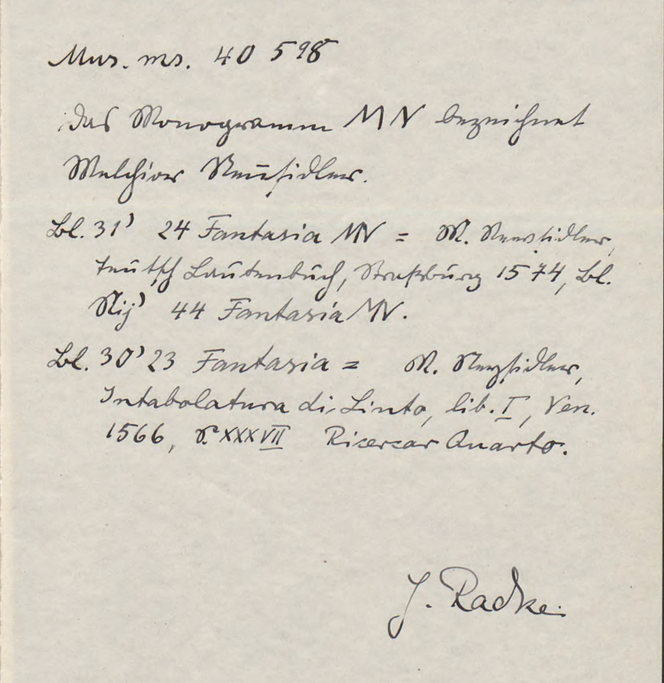 Mus. ms. 40 598
Das Monogramm MN bezeichnet
Melchior Neusidler.
Bl. 31' 24 Fantasia MN = M. Newsidler,
Teutsch Lautenbuch, Straßburg 1574, Bl.
Nij' 44 Fantasia MN.
Bl. 30' 23 Fantasia = M. Neysidler,
Intabolatura di Liuto, lib. I, Ven.
1566, XXXVII Ricercar Quarto.
J. Radke.